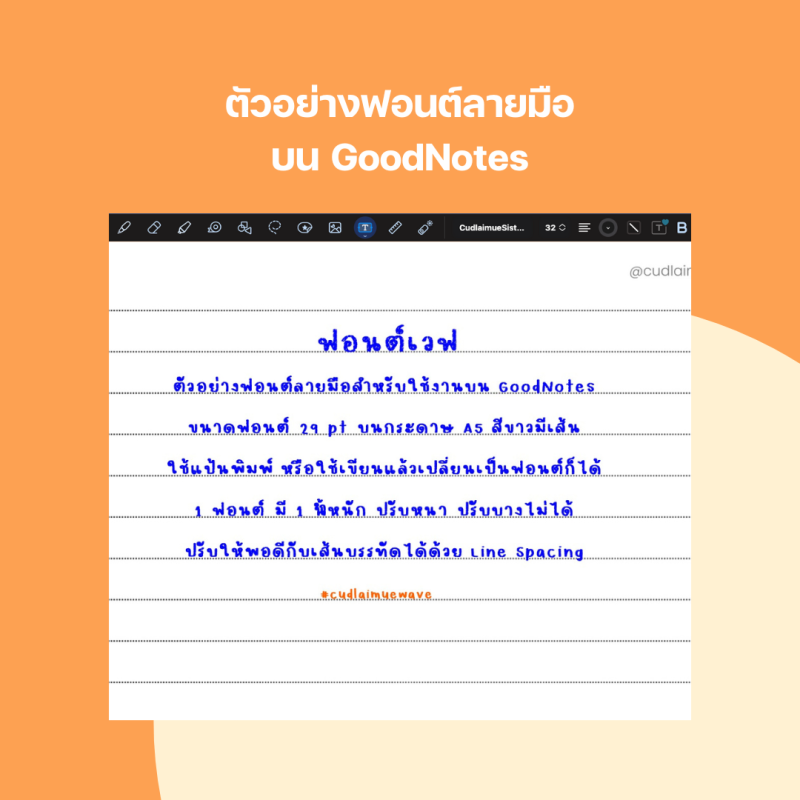 ตัวอย่างฟอนต์ลายมือ
บน GoodNotes
CudlaimueSist... 32 B
@cudlai
ฟอนต์เวฟ
ตัวอย่างฟอนต์ลายมือสำหรับใช้งานบน GoodNotes
ขนาดฟอนต์ 29 pt บนกระดาษ A5 สีขาวมีเส้น
ใช้แป้นพิมพ์ หรือใช้เขียนแล้วเปลี่ยนเป็นฟอนต์ก็ได้
1 ฟอนต์ มี 1 น้ำหนัก ปรับหนา ปรับบางไม่ได้
ปรับให้พอดีกับเส้นบรรทัดได้ด้วย Line Spacing
#cudlaimuewave